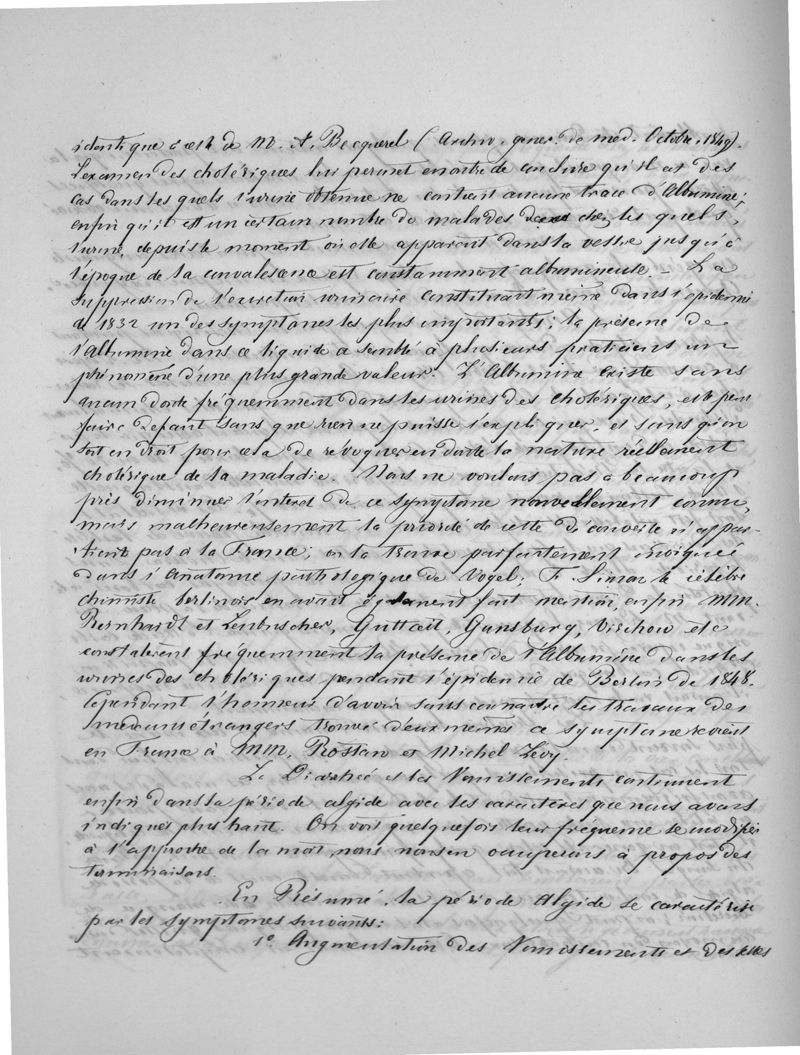 identique c'est de M. A. Becquerel (Archiv. gener. de med. Octobre. 1849).
L'examen des cholériques lui permet en outre de conclure qu'il est des
cas dans les quels l'urine obtenue ne contient aucune trace d'Albumine;
enfin qu'il est un certain nombre de malades chez les quels,
l'urine, depuis le moment où elle apparait dans la vessie jusqu'à
l'époque de la convalescence est constamment albumineuse. – La
suppression de l'excretion urinaire constituant même dans l'épidemie
de 1832 un des symptomes les plus importants; la présence de
l'Albumine dans ce liquide a semblé à plusieurs praticiens un
phénomène d'une plus grande valeur. L'Albumine existe sans
aucun doute fréquemment dans les urines des cholériques, elle peut
faire defaut sans que rien ne puisse l'expliquer, et sans qu'on
soit en droit pour cela de révoquer en doute la nature réellement
cholérique de la maladie. Nous ne voulons pas à beaucoup
près diminuer l'interet de ce symptome nouvellement connu,
mais malheureusement la priorité de cette découverte n'appar-
tient pas à la France; on la trouve parfaitement indiquée
dans l'anatomie pathologique de Vogel; F. Simon le célèbre
chimiste berlinois en avait également fait mention, enfin MM.
Bernhardt et Leubuscher, Guttait, Gunsburg, Virchow etc
constatèrent fréquemment la présence de l'Albumine dans les
urines des cholériques pendant l'épidemie de Berlin de 1848.
Cependant l'honneur d'avoir sans connaitre les travaux des
médecins étrangers trouvé d'eux mêmes ce symptome revient
en France à MM. Rostan et Michel Lévy.
La Diarrhée et les Vomissements continuent
enfin dans la période algide avec les caractères que nous avons
indiqués plus haut. On voit quelquefois leur fréquence se modifier
à l'approche de la mort, nous nous en occuperons à propos des
terminaisons.
En Résumé, la période Algide se caractérise
par les symptomes suivants:
1º Augmentation des Vomissements et des selles